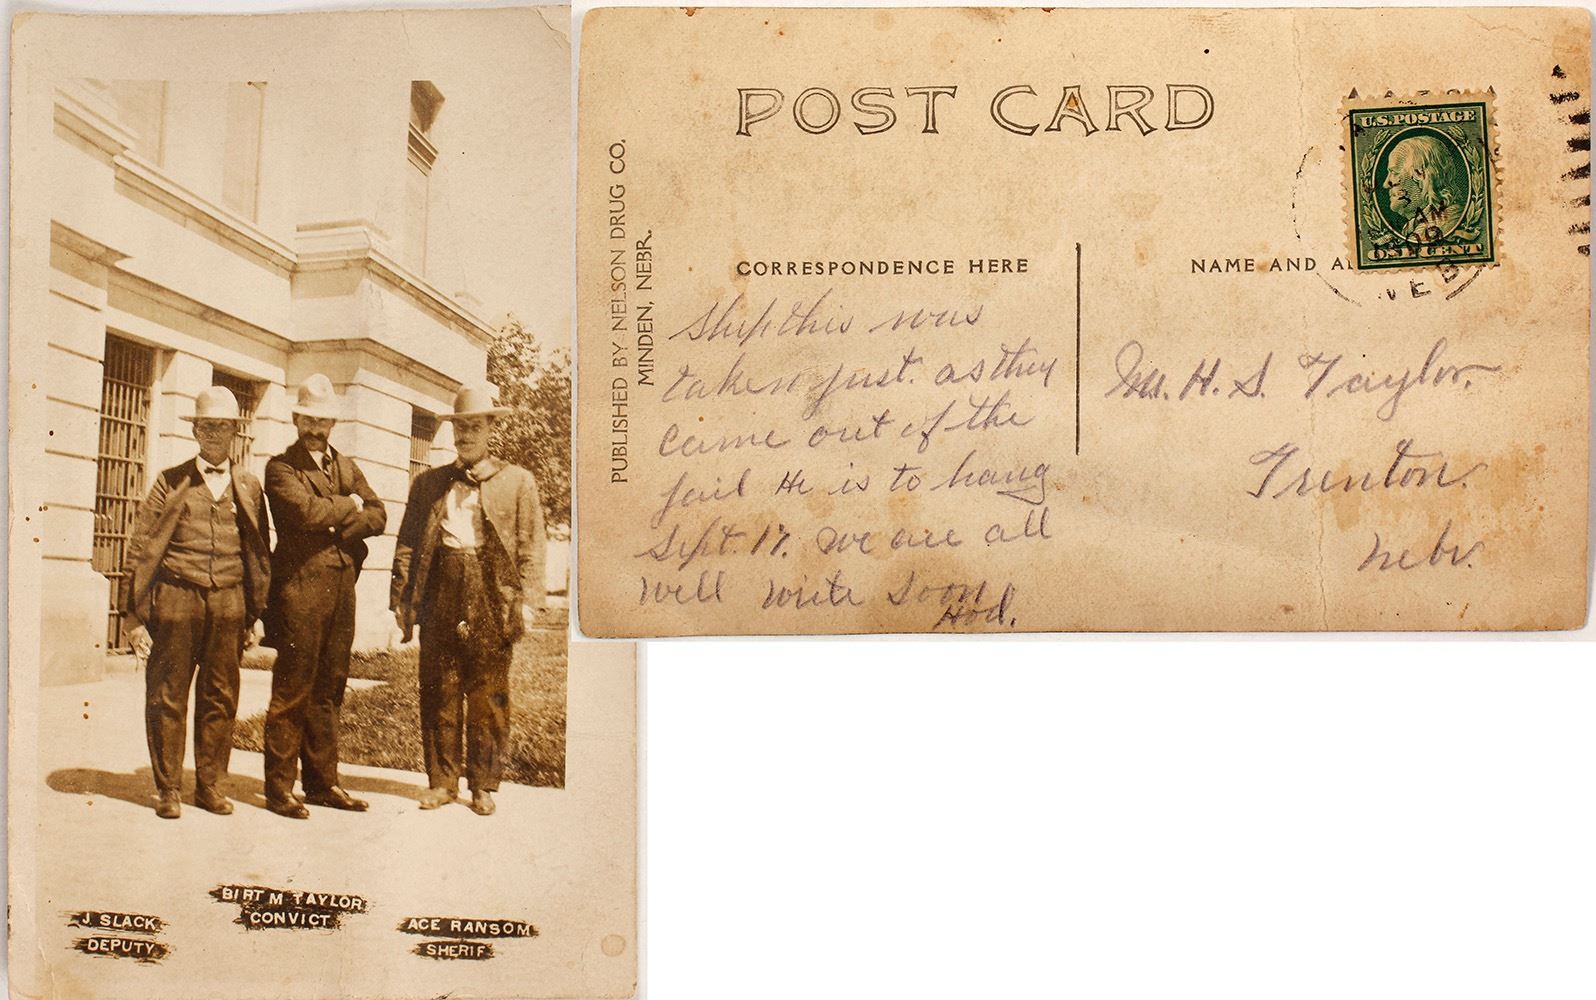 J SLACK
DEPUTY
BIRT M TAYLOR
CONVICT
ACE RANSOM
SHERIF
PUBLISHED BY NELSON DRUG CO.
MINDEN, NEBR.
POST CARD
CORRESPONDENCE HERE
this was
taken just. as they
came out of the
jail He is to hang
Sept. 17. We are all
well write soon
Hod.
NAME AND
U.S. POSTAGE
AM
09
CENT
NEB
Mr. H. S. Taylor.
Trenton.
Nebr.